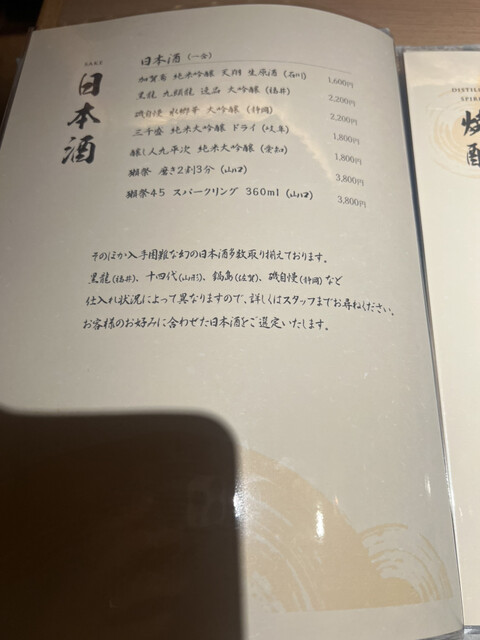 SAKE
日本酒
日本酒（一合）
加賀鳶 純米大吟醸 天翔 生原酒（石川） 1,600円
黒龍 九頭龍 逸品 大吟醸（福井） 2,200円
磯自慢 水響華 大吟醸（静岡） 2,200円
三千盛 純米大吟醸 ドライ（岐阜） 1,800円
醸し人九平次 純米大吟醸（愛知） 1,800円
獺祭 磨き2割3分（山口） 3,800円
獺祭45 スパークリング 360ml（山口） 3,800円
そのほか入手困難な幻の日本酒多数取り揃えております。
黒龍（福井）、十四代（山形）、鍋島（佐賀）、磯自慢（静岡）など
仕入れ状況によって異なりますので、詳しくはスタッフまでお尋ねください。
お客様のお好みに合わせた日本酒をご選定いたします。